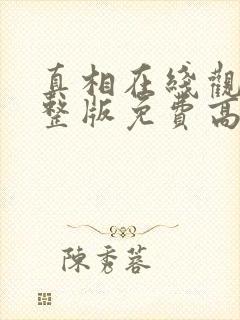 真相在綫觀
整版免費高
陳秀蓉